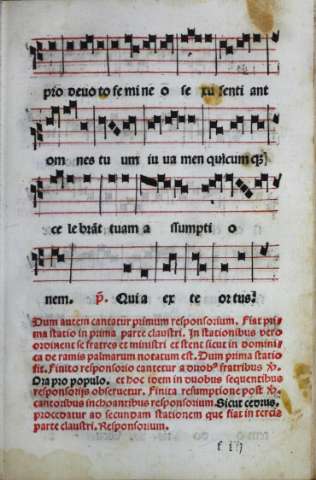 pro deuo to fe mi ne o se xu senti ant
om nes tu um iu ua men quicum qꝫ
ce le brāt tuam a ssumpti o
nem. ꝟ. Qui a ex te or tus?
Dum autem cantatur primum responsorium. Fiat pri-
ma statio in prima parte claustri. In stationibus vero
ordinent se fratres et ministri et stent sicut in domini-
ca de ramis palmarum notatum est. Dum prima statio
fit. Finito responsorio cantetur a duobꝰ fratribus ꝟ.
Ora pro populo. et hoc idem in duobus sequentibus
responsorijs obseruetur. Finita resumptione post ꝟ.
cantoribus inchoantibus responsorium Sicut cedrus.
procedatur ad secundam stationem que fiat in tercia
parte claustri. Responsorium.
f iij